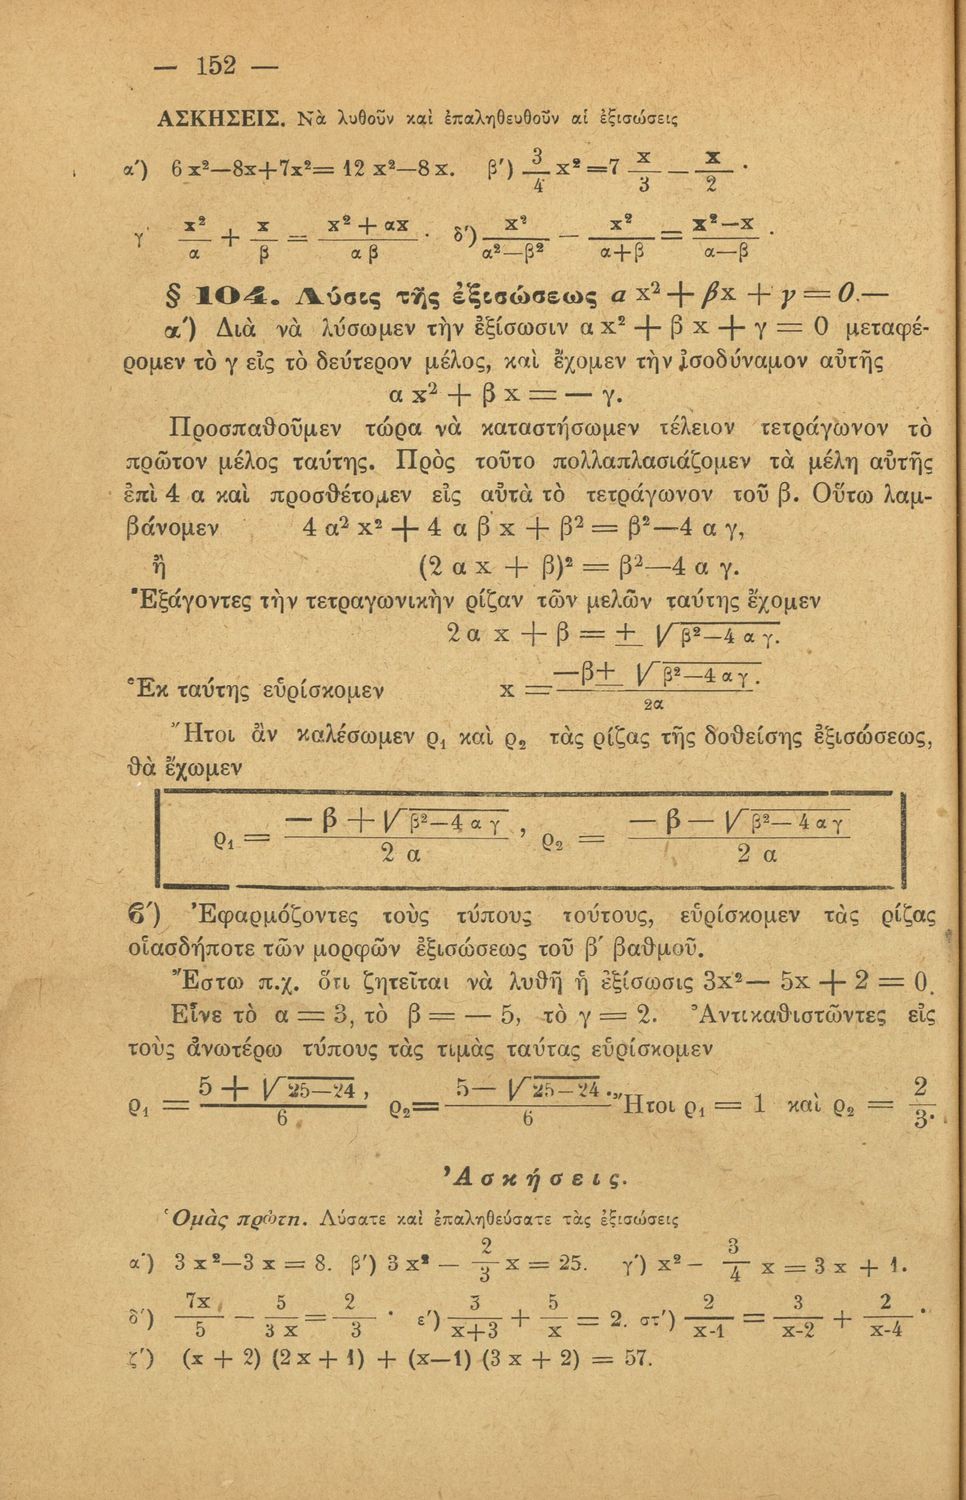 — 152 —
ΑΣΚΗΣΕΙΣ. Νὰ λυθοῦν καὶ ἐπαληθευθοῦν αἱ ἐξισώσεις
α′) 6 x²—8x+7x²= 12 x²—8 x. β′) 3/4 x²=7 x/3 — x/2 .
γ x²/α + x/β = x² + αx/α β . δ′) x²/α²—β² — x²/α+β = x²—x/α—β .
§ 104. Λύσις τῆς ἐξισώσεως α x² + βx + γ = 0.—
α′) Διὰ νὰ λύσωμεν τὴν ἐξίσωσιν α x² + β x + γ = 0 μεταφέ-
ρομεν τὸ γ εἰς τὸ δεύτερον μέλος, καὶ ἔχομεν τὴν ἰσοδύναμον αὐτῆς
α x² + β x = — γ.
Προσπαθοῦμεν τώρα νὰ καταστήσωμεν τέλειον τετράγωνον τὸ
πρῶτον μέλος ταύτης. Πρὸς τοῦτο πολλαπλασιάζομεν τὰ μέλη αὐτῆς
ἐπὶ 4 α καὶ προσθέτομεν εἰς αὐτὰ τὸ τετράγωνον τοῦ β. Οὕτω λαμ-
βάνομεν 4 α² x² + 4 α β x + β² = β²—4 α γ,
ἢ (2 α x + β)² = β²—4 α γ.
Ἐξάγοντες τὴν τετραγωνικὴν ρίζαν τῶν μελῶν ταύτης ἔχομεν
2 α x + β = ± √β²—4 α γ.
Ἐκ ταύτης εὑρίσκομεν x = —β± √β²—4 α γ/2α .
Ἤτοι ἂν καλέσωμεν ρ₁ καὶ ρ₂ τὰς ρίζας τῆς δοθείσης ἐξισώσεως,
θὰ ἔχωμεν
ρ₁ = — β + √β²—4 α γ/2 α , ρ₂ = — β — √β²—4 α γ/2 α
β′) Ἐφαρμόζοντες τοὺς τύπους τούτους, εὑρίσκομεν τὰς ρίζας
οἱασδήποτε τῶν μορφῶν ἐξισώσεως τοῦ β′ βαθμοῦ.
Ἔστω π.χ. ὅτι ζητεῖται νὰ λυθῇ ἡ ἐξίσωσις 3x²— 5x + 2 = 0.
Εἶνε τὸ α = 3, τὸ β = — 5, τὸ γ = 2. Ἀντικαθιστῶντες εἰς
τοὺς ἀνωτέρω τύπους τὰς τιμὰς ταύτας εὑρίσκομεν
ρ₁ = 5 + √25—24/6 , ρ₂= 5— √25—24/6 . Ἤτοι ρ₁ = 1 καὶ ρ₂ = 2/3.
Ἀσκήσεις.
Ὁμὰς πρώτη. Λύσατε καὶ ἐπαληθεύσατε τὰς ἐξισώσεις
α′) 3 x²—3 x = 8. β′) 3 x² — 2/3 x = 25. γ′) x² - 3/4 x = 3 x + 1.
δ′) 7x/5 — 5/3 x = 2/3 . ε′) 3/x+3 + 5/x = 2. στ′) 2/x-1 = 3/x-2 + 2/x-4 .
ζ′) (x + 2) (2 x + 1) + (x—1) (3 x + 2) = 57.